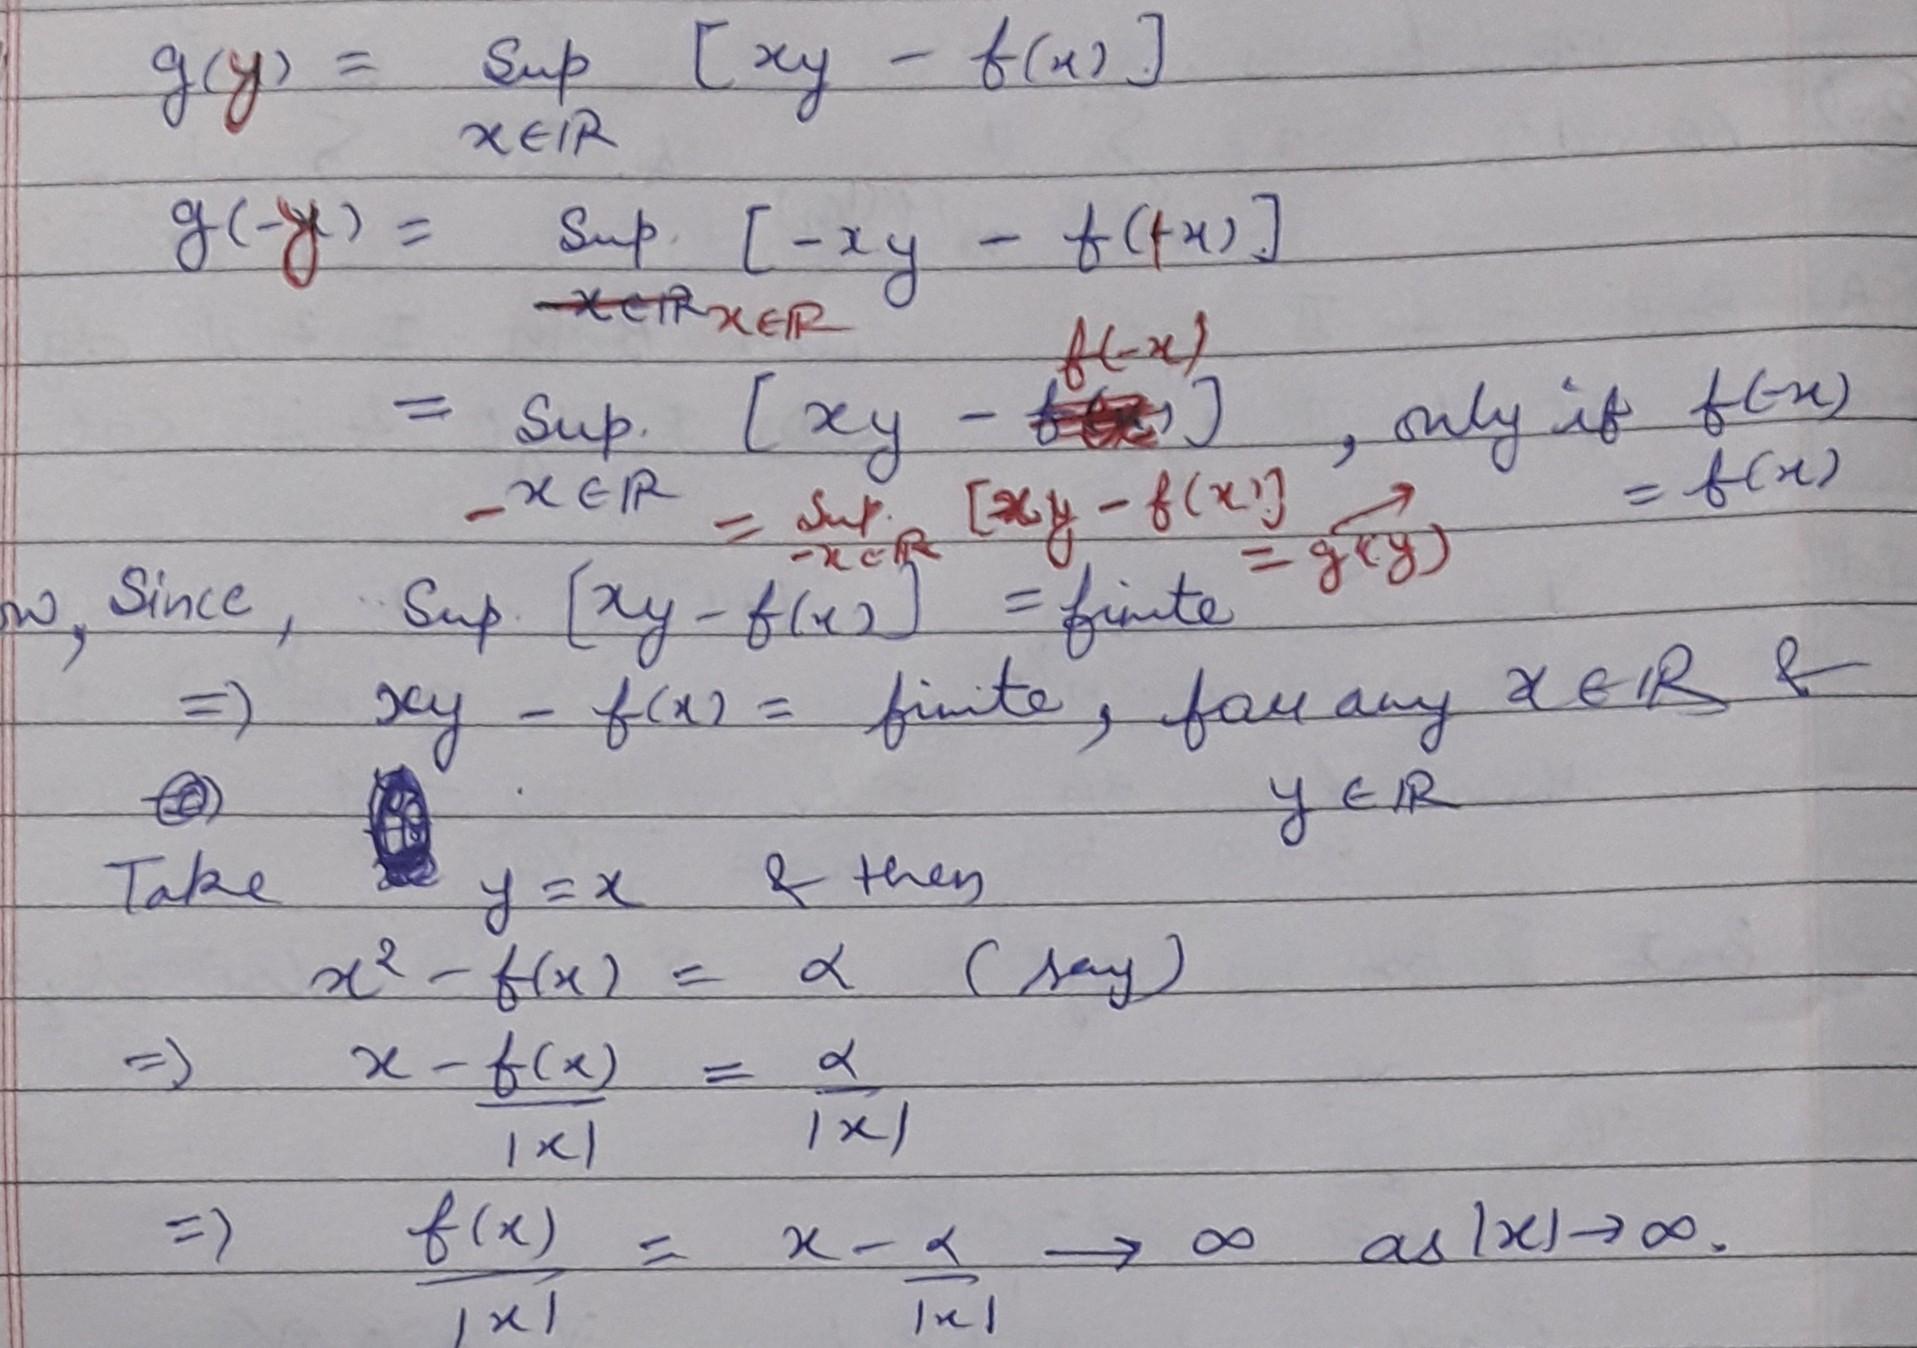 g(y) = Sup [xy - f(x)]
x∈ℝ
g(-y) = Sup. [-xy - f(+x)]
x∈ℝ
f(-x)
= Sup. [xy - ] , only if f(-x)
-x∈ℝ = Sup. [xy - f(x)] = f(x)
-x∈ℝ = g(y)
, Since, Sup. [xy - f(x)] = finite
=> xy - f(x) = finite, for any x∈ℝ &
y∈ℝ
Take y = x & then
x² - f(x) = α (say)
=> x - f(x)/|x| = α/|x|
=> f(x)/|x| = x - α/|x| → ∞ as |x| → ∞.